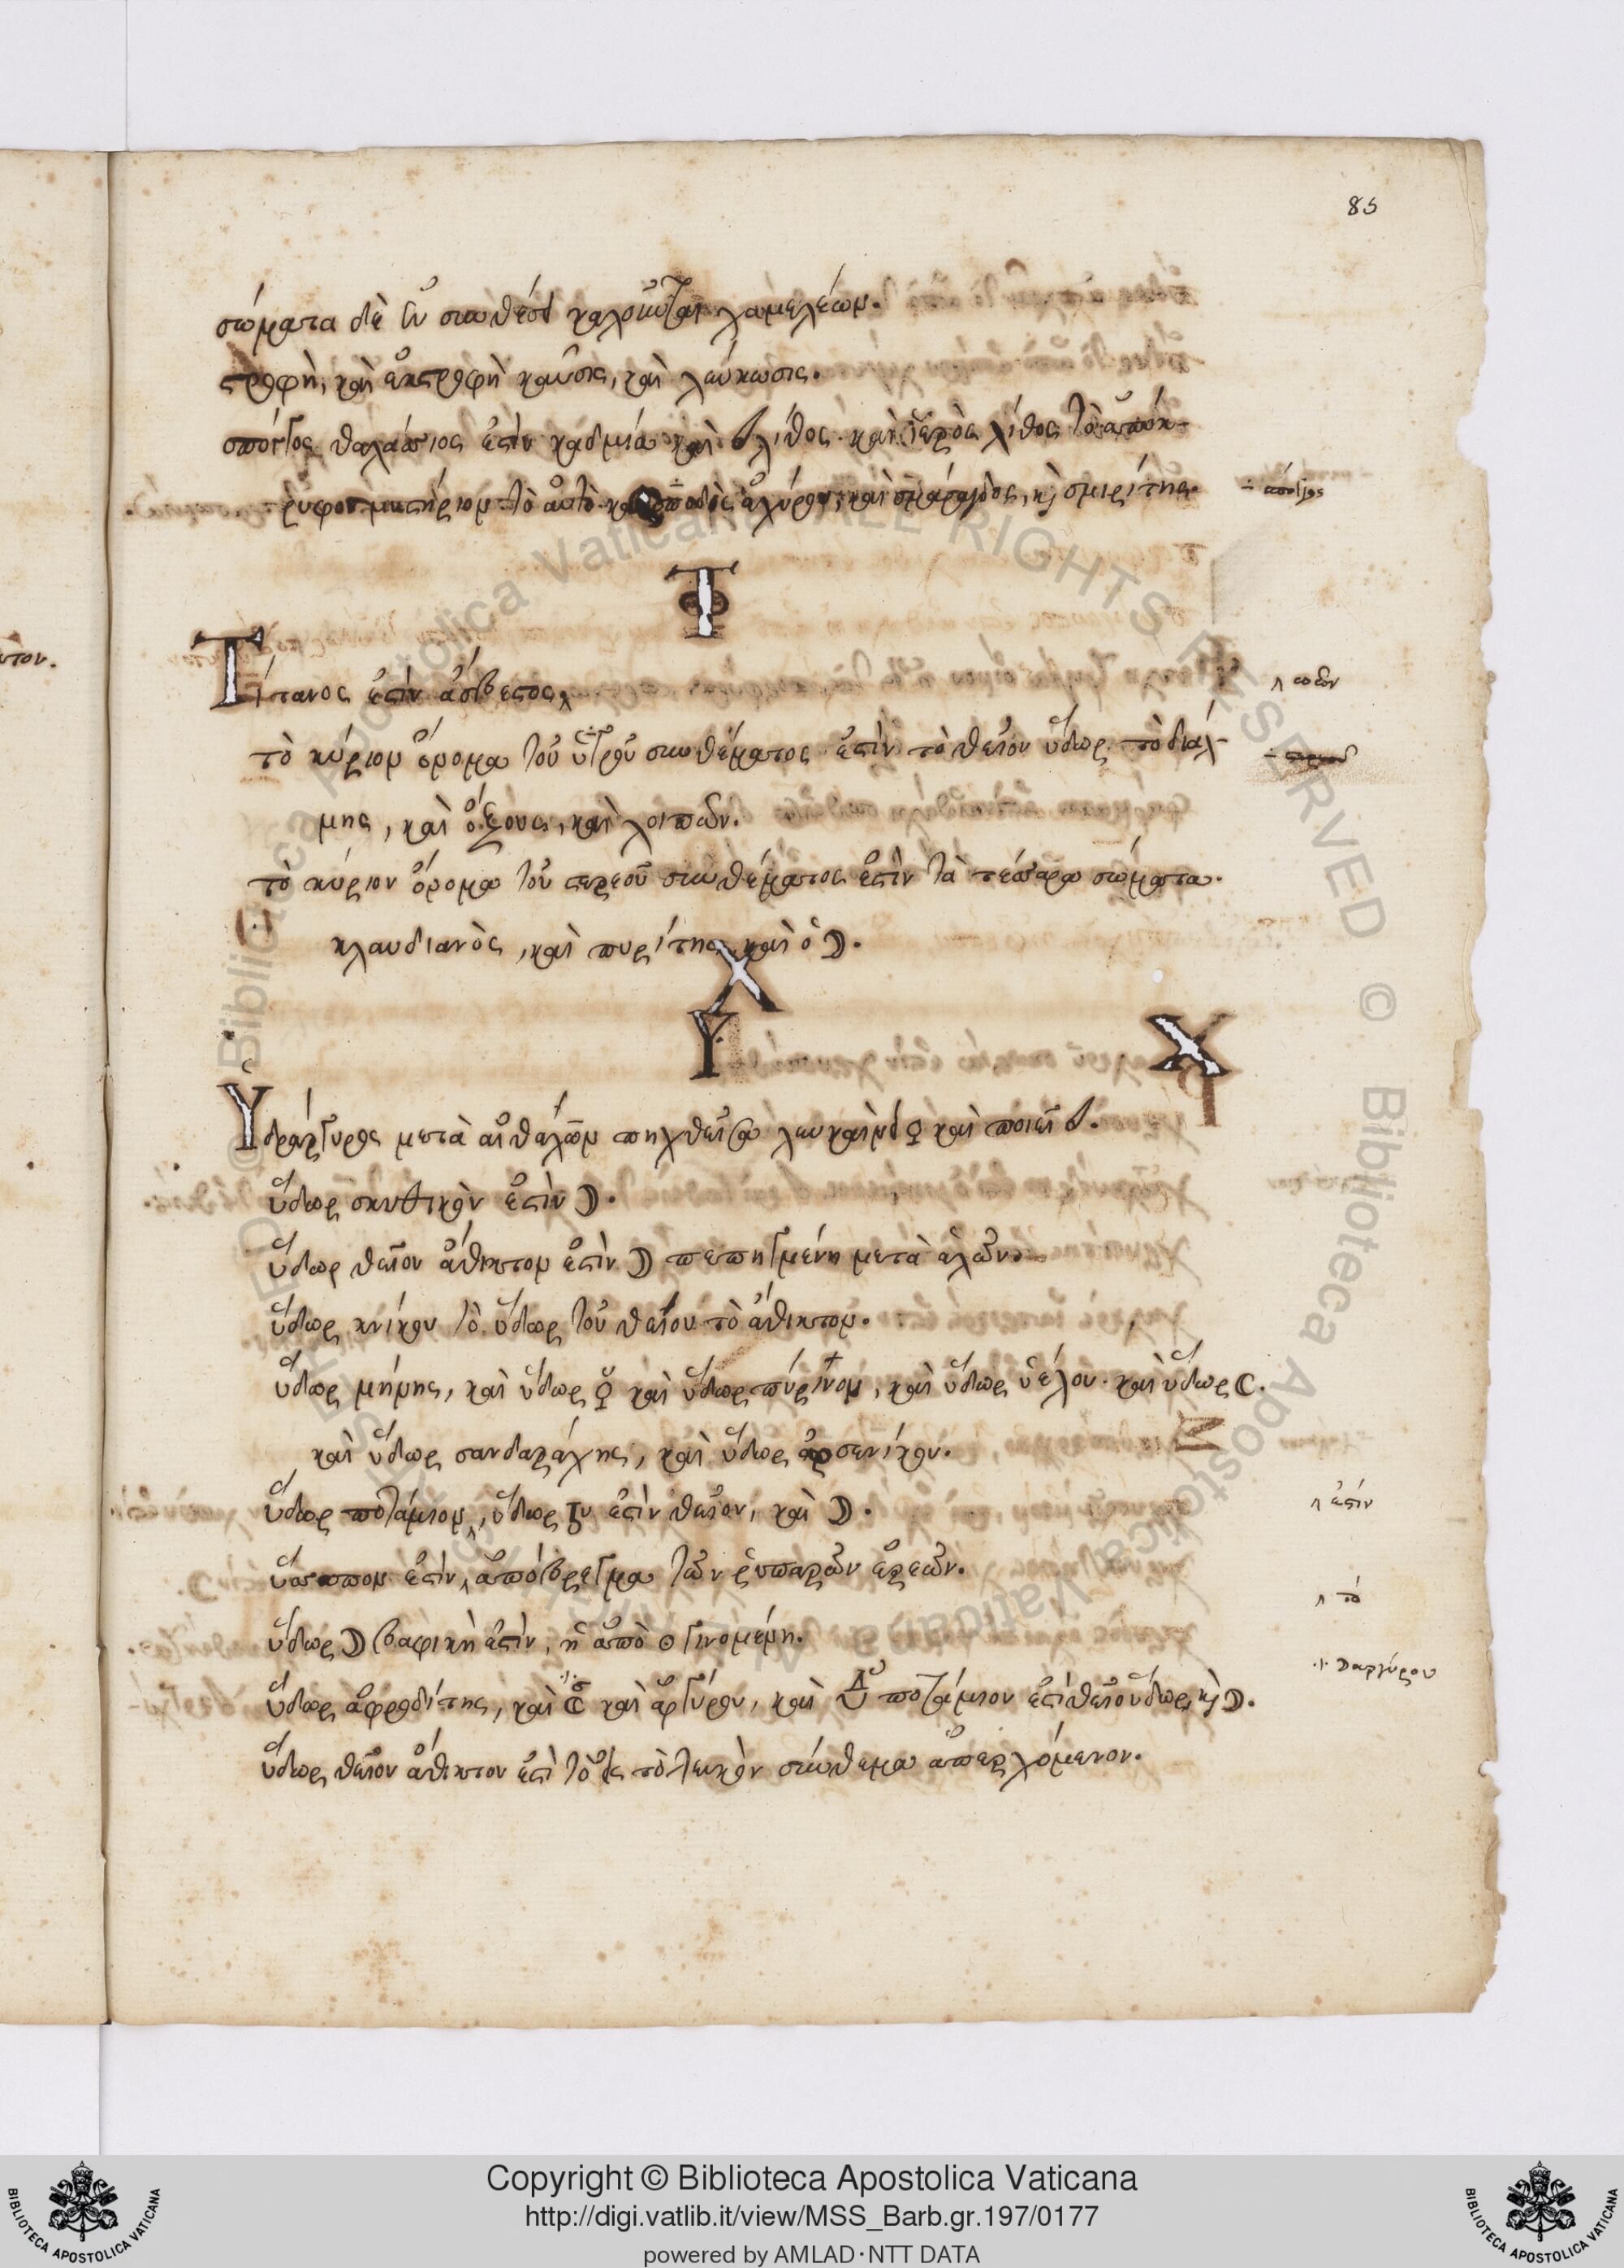 85
σώματα δὲ ἐν συνθέσει καλοῦνται χαμελέων.
στροφὴ, καὶ ἐκστροφὴ καῦσις, καὶ λεύκωσις.
σπόγγος θαλάσσιος ἐστὶν καδμία καὶ λίθος. καὶ ἱερὸς λίθος τὸ ἀπόκ-
ρυφον μυστήριον τὸ αὐτὸ καὶ σποδὸς ἀχύρου, καὶ σμάραγδος, κὶ σμιρίτης.
Τ
Τίτανος ἐστὶν ἄσβεστος
τὸ κύριον ὄνομα τοῦ ὑγροῦ συνθέματος ἐστὶν τὸ θεῖον ὕδωρ. τὸ δι' ἅλ-
μης, καὶ ὄξους, καὶ λοιπῶν.
τὸ κύριον ὄνομα τοῦ στερεοῦ συνθέματος ἐστὶν τὰ τέσσαρα σώματα.
κλαυδιανὸς, καὶ πυρίτης, καὶ ὁ ☽.
Υ
Ὑδράργυρος μετὰ αἰθαλῶν πηχθεῖσα λευκαίνει ♀ καὶ ποιεῖ
ὕδωρ σκυθικὸν ἐστὶν ☽.
ὕδωρ θεῖον ἄθικτον ἐστὶν ☽ πεπηγμένη μετὰ ἁλῶν.
ὕδωρ κνίκου τὸ ὕδωρ τοῦ θείου τὸ ἄθικτον.
ὕδωρ μήνης, καὶ ὕδωρ ♀ καὶ ὕδωρ πύρινον, καὶ ὕδωρ ὑέλου. καὶ ὕδωρ ☾.
καὶ ὕδωρ σανδαράχης, καὶ ὕδωρ ἀρσενίκου.
ὕδωρ ποτάμιον, ὕδωρ ἐστὶν θεῖον, καὶ ☽.
ὕσσωπον ἐστὶν, ἀπόβρεγμα τῶν ῥυπαρῶν ἐρεῶν.
ὕδωρ ☽ βαφικὴ ἐστὶν, ἡ ἀπὸ γινομένη.
ὕδωρ ἀφροδίτης, καὶ ☾ καὶ ἀργύρου, καὶ ποτάμιον ἐστὶ θεῖον ὕδωρ, κὶ ☽.
ὕδωρ θεῖον ἄθικτον ἐστὶ τὸ εἰς τὸ λευκὸν σύνθεμα ἀπερχόμενον.
σπόγγος
ἐστίν
τὸ
☽ αργύρου
Copyright © Biblioteca Apostolica Vaticana
http://digi.vatlib.it/view/MSS_Barb.gr.197/0177
powered by AMLAD·NTT DATA
BIBLIOTECA APOSTOLICA VATICANA
BIBLIOTECA APOSTOLICA VATICANA